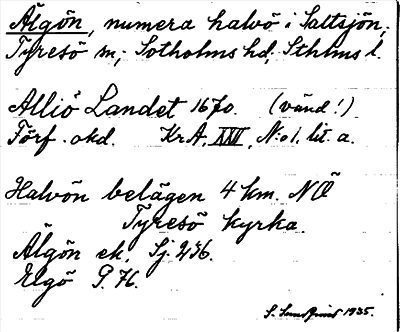 Älgön, numera halvö i Saltsjön,
Tyresö sn; Sotholms hd, Sthlms l.
Alliö Landet 1670. (vänd!)
Förf. okd. KrA, XXVI, N:o 1. lit. a.
Halvön belägen 4 km. NÖ
Tyresö kyrka.
Älgön ek. Sj. 236.
Elgö P. 76.
S. 1935.